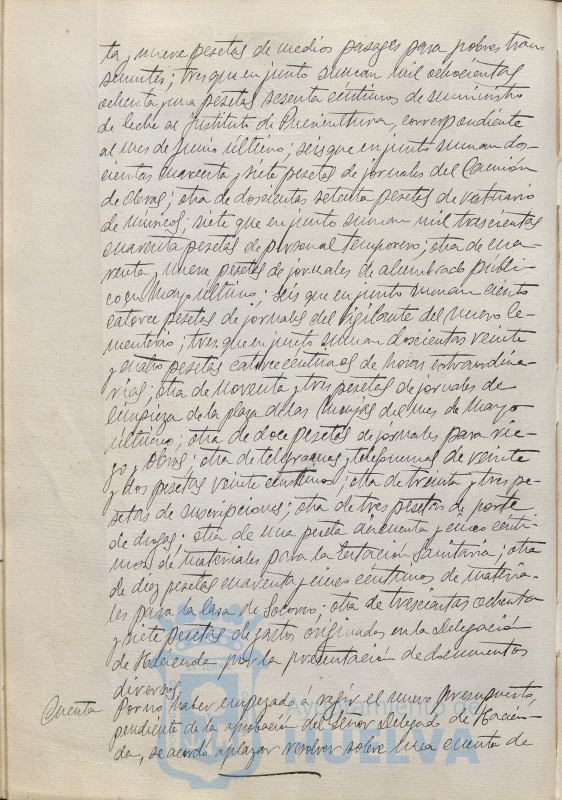 ta, nueve pesetas de medios pasages para pobres tran
seuntes; tres que en junto suman mil ochocientas
ochenta una pesetas sesenta céntimos de suministro
de leche al Instituto de Puericultura, correspondiente
al mes de Junio último; seis que en junto suman dos-
cientas cuarenta y siete pesetas de jornales del Camión
de; otra de doscientas setenta pesetas de vestuario
de músicos; siete que en junto suman mil trescientas
cuarenta pesetas de personal temporero; otra de cua-
renta y nueve pesetas de jornales de alumbrado públi-
co en Mayo último; seis que en junto suman ciento
catorce pesetas de jornales del vigilante del nuevo Ce-
menterio; tres que en junto suman doscientas veinte
y cuatro pesetas catorce céntimos de horas extraordina-
rias; otra de noventa y tres pesetas de jornales de
limpieza de la plaza de las Monjas del mes de Mayo
último; otra de doce pesetas de jornales para rie-
go y obras; otra de telegramas y telefonemas de veinte
y dos pesetas veinte céntimos; otra de treinta y tres pe-
setas de suscripciones; otra de tres pesetas de porte
de drogas; otra de una peseta cincuenta y cinco cénti-
mos de materiales para la Estación Sanitaria; otra
de diez pesetas cuarenta y cinco céntimos de materia-
les para la Casa de Socorro; otra de trescientas ochenta
y siete pesetas de gastos originados en la Delegación
de Hacienda por la presentación de documentos
diversos.
Cuenta Por no haber empezado á regir el nuevo Presupuesto,
pendiente de la aprobación del Señor Delegado de Hacien-
da, se acordó aplazar resolver sobre una cuenta de
Ayuntamiento de
HUELVA